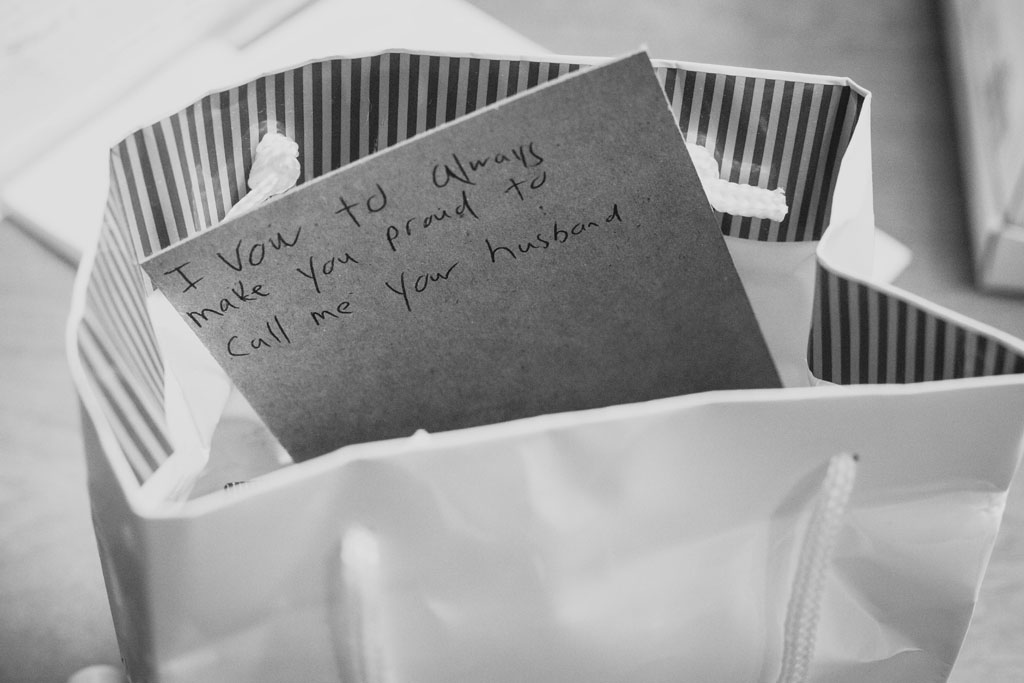 I vow to always
make you proud to
call me your husband.